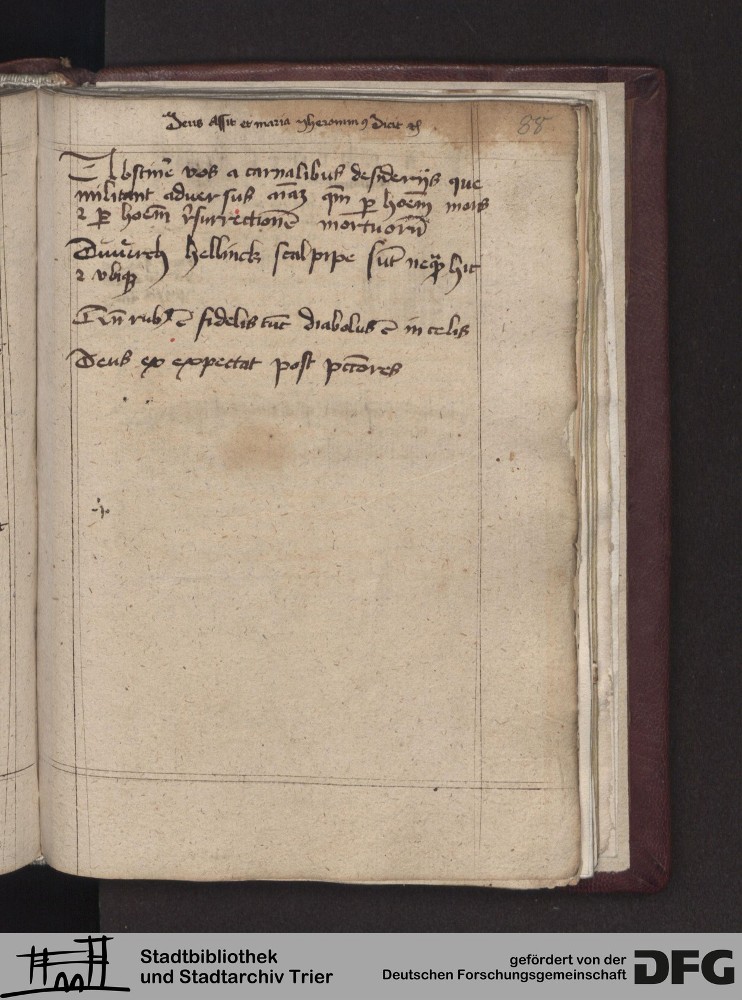 Deus assit et maria yheronim⁹ dicit
88
Abstinē vos a carnalibus desiderijs que
militant adversus aīaȝ qm̄ p hoēm mors
⁊ p hoēm r̄surrectionē mortuorū
hellinck scalpipe sūt neq̨ hic
⁊ vbiq̨
rub ē fidelis tūc diabolus ē in celis
Deus ex expectat post pctōres
Stadtbibliothek
und Stadtarchiv Trier
gefördert von der
Deutschen Forschungsgemeinschaft
DFG